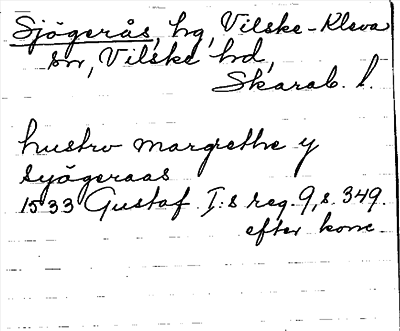 Sjögerås, hg, Vilske-Kleva
sn, Vilske hd,
Skarab. l.
hustro margrethe y
syögeraas
1533 Gustaf I:s reg. 9, s. 349.
efter konc.